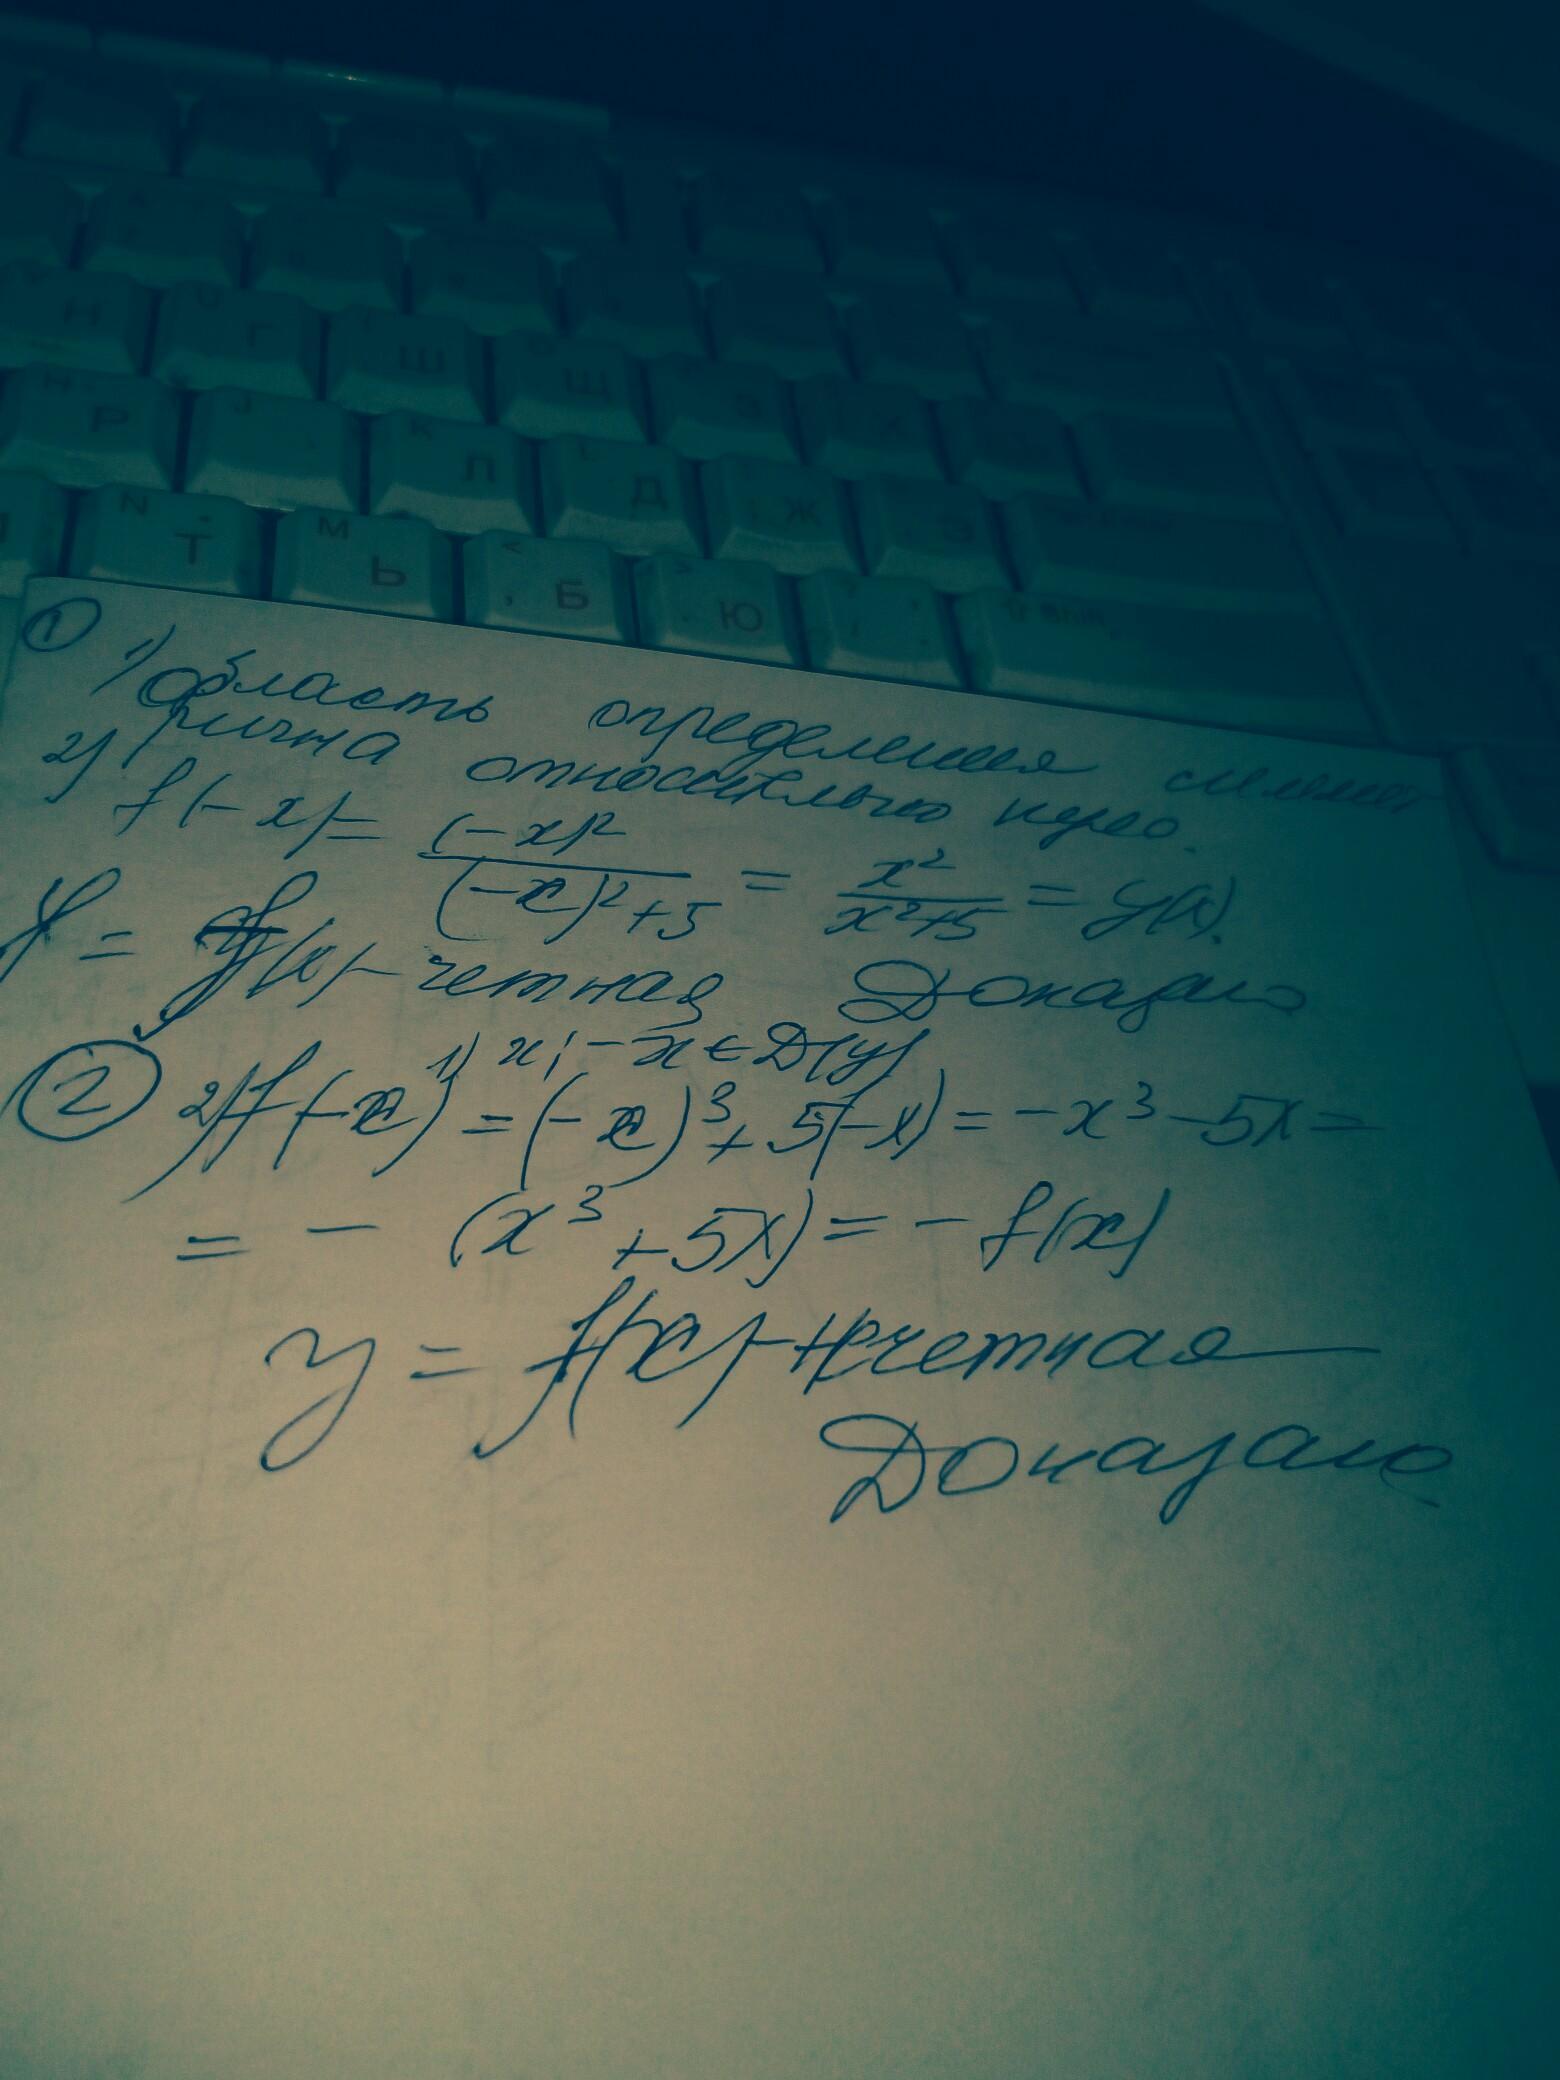 Н Г Ш Щ З Х
Н Р J К Л Д Ж Э
N Т М Ь < , Б > . Ю
Shift
①
1) Область определения симмет
рична относительно нуля.
2) f(-x)= (-x)² / (-x)²+5 = x² / x²+5 = y(x).
y = f(x) - четная Доказано
② 1) x; -x ∈ D(y)
2) f(-x) = (-x)³ + 5(-x) = -x³ - 5x =
= - (x³ + 5x) = - f(x)
y = f(x) - нечетная
Доказано